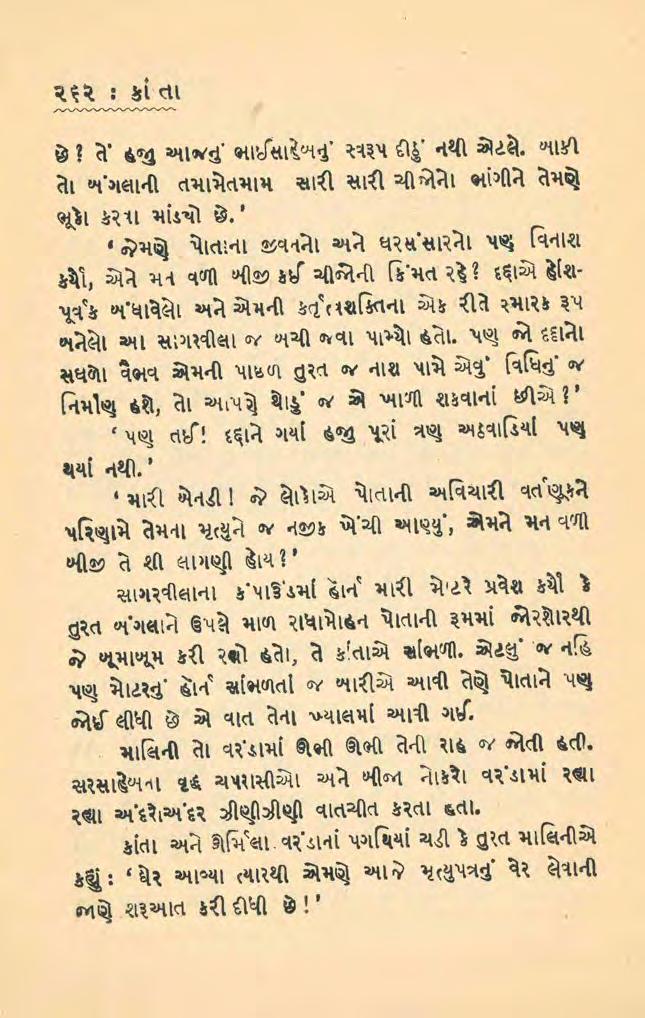 ૨૬૨ : કાંતા
છે ? તેં હજી આજનું ભાઈસાહેબનું સ્વરૂપ દીઠું નથી એટલે. બાકી
તો બંગલાની તમામેતમામ સારી સારી ચીજોનો ભાંગીને તેમણે
ભૂકો કરવા માંડયો છે.’
‘ જેમણે પોતાના જીવનનો અને ઘરસંસારનો પણ વિનાશ
કર્યો, એને મન વળી બીજી કઈ ચીજોની કિંમત રહે ? દદ્દાએ હોંશ-
પૂર્વક બંધાવેલો અને એમની કર્તૃત્વશક્તિના એક રીતે સ્મારક રૂપ
બનેલો આ સાગરવીલા જ બચી જવા પામ્યો હતો. પણ જો દદ્દાનો
સઘળો વૈભવ એમની પાછળ તુરત જ નાશ પામે એવું વિધિનું જ
નિર્માણ હશે, તો આપણે થોડું જ એ ખાળી શકવાનાં છીએ ?’
‘ પણ તઈ ! દદ્દાને ગયાં હજી પૂરાં ત્રણ અઠવાડિયાં પણ
થયાં નથી.’
‘ મારી બેનડી ! જે લોકોએ પોતાની અવિચારી વર્તણૂકને
પરિણામે તેમના મૃત્યુને જ નજીક ખેંચી આણ્યું, એમને મન વળી
બીજી તે શી લાગણી હોય ?’
સાગરવીલાના કંપાઉંડમાં હોર્ન મારી મોટરે પ્રવેશ કર્યો કે
તુરત બંગલાને ઉપલે માળ રાધામોહન પોતાની રૂમમાં જોરશોરથી
જે બૂમાબૂમ કરી રહ્યો હતો, તે કાંતાએ સાંભળી. એટલું જ નહિ
પણ મોટરનું હોર્ન સાંભળતાં જ બારીએ આવી તેણે પોતાને પણ
જોઈ લીધી છે એ વાત તેના ખ્યાલમાં આવી ગઈ.
માલિની તો વરંડામાં ઊભી ઊભી તેની રાહ જ જોતી હતી.
સરસાહેબના વૃદ્ધ ચપરાસીઓ અને બીજા નોકરો વરંડામાં રહ્યા
રહ્યા અંદરોઅંદર ઝીણીઝીણી વાતચીત કરતા હતા.
કાંતા અને ઊર્મિલા વરંડાનાં પગથિયાં ચડી કે તુરત માલિનીએ
કહ્યું : ‘ ઘેર આવ્યા ત્યારથી એમણે આજે મૃત્યુપત્રનું વેર લેવાની
જાણે શરૂઆત કરી દીધી છે !’